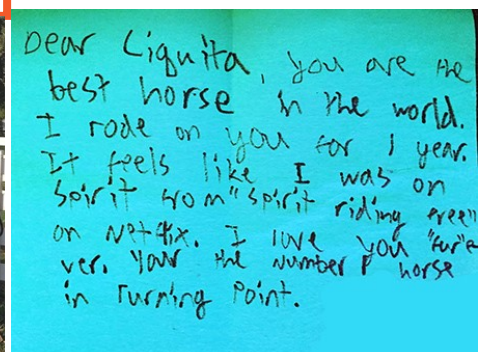 Dear Liquita, you are the
best horse in the world.
I rode on you for 1 year.
It feels like I was on
Spirit from "Spirit riding free"
on Netflix. I love you "for"e
ver. Your the number 1 horse
in Turning Point.